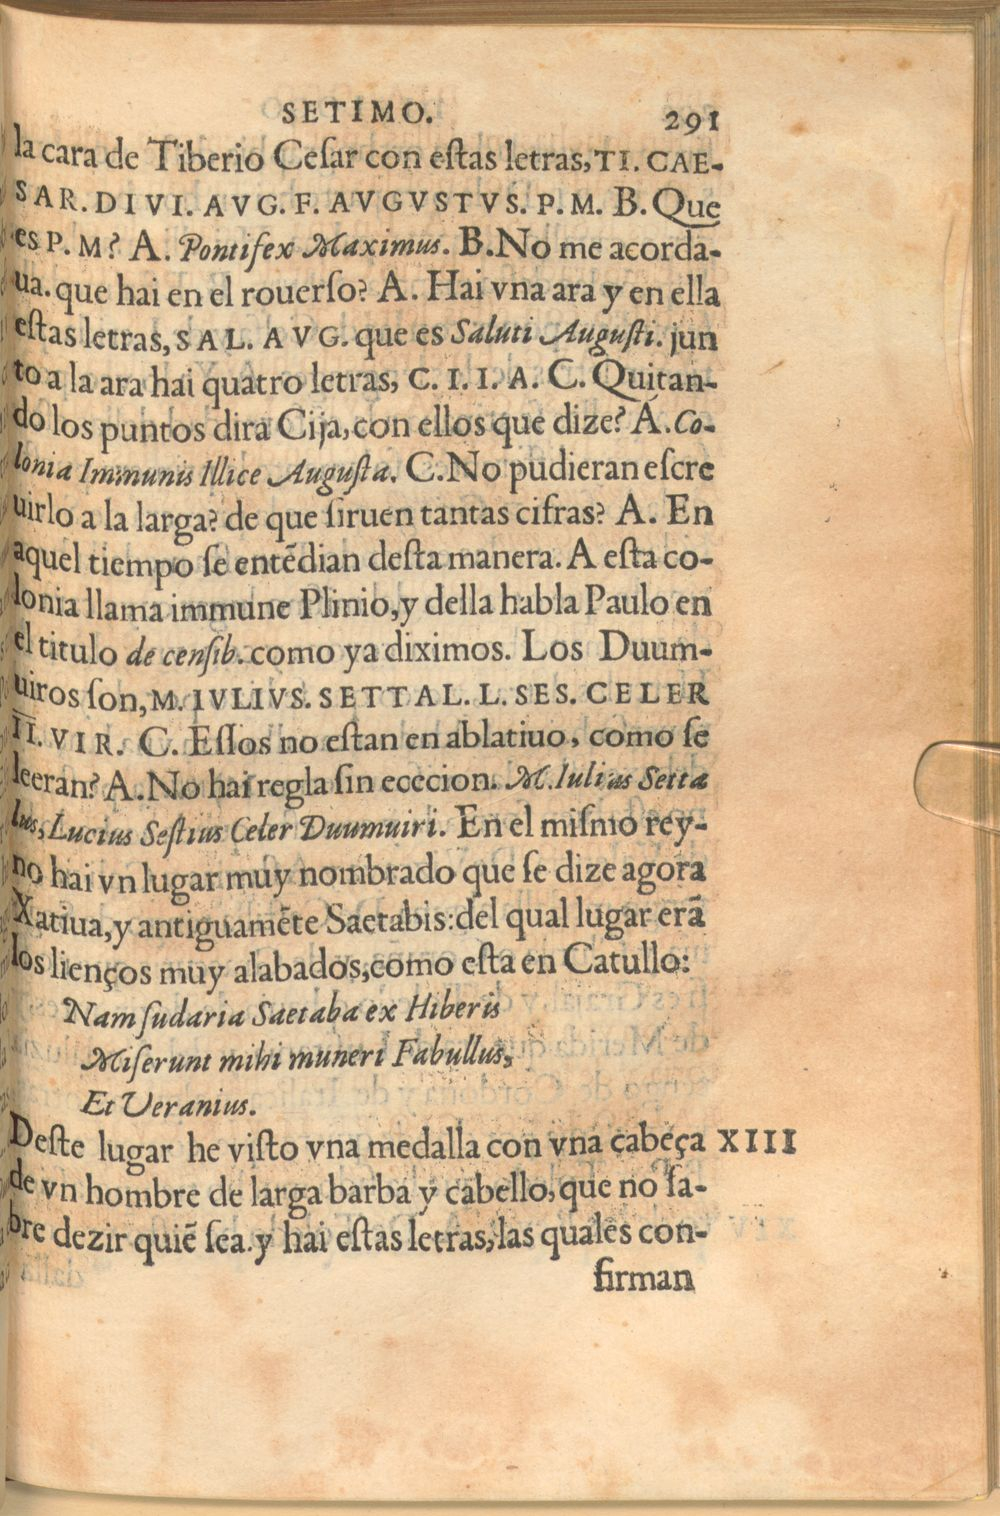 SETIMO. 291
la cara de Tiberio Ceſar con eſtas letras, TI. CAE-
SAR. DIVI. AVG. F. AVGVSTVS. P. M. B. Que
es P. M? A. Pontifex Maximus. B. No me acorda-
ua. que hai en el rouerſo? A. Hai vna ara y en ella
eſtas letras, SAL. AVG. que es Saluti Auguſti. jun
to a la ara hai quatro letras, C. I. I. A. C. Quitan-
do los puntos dira Cija, con ellos que dize? A. Co-
lonia Immunis Illice Auguſta. C. No pudieran eſcre
uirlo a la larga? de que ſiruen tantas cifras? A. En
aquel tiempo ſe entẽdian deſta manera. A eſta co-
lonia llama immune Plinio, y della habla Paulo en
el titulo de cenſib. como ya diximos. Los Duum-
uiros ſon, M. IVLIVS. SETTAL. L. SES. CELER
II. VIR. C. Eſſos no eſtan en ablatiuo, como ſe
leeran? A. No hai regla ſin ececion. M. Iulius Setta
lus, Lucius Seſtius Celer Duumuiri. En el miſmo rey-
no hai vn lugar muy nombrado que ſe dize agora
Xatiua, y antiguamẽte Saetabis: del qual lugar erã
los lienços muy alabados, como eſta en Catullo:
Nam ſudaria Saetaba ex Hiberis
Miſerunt mihi muneri Fabullus,
Et Veranius.
Deſte lugar he viſto vna medalla con vna cabeça XIII
de vn hombre de larga barba y cabello, que no ſa-
bre dezir quiẽ ſea. y hai eſtas letras, las quales con-
firman